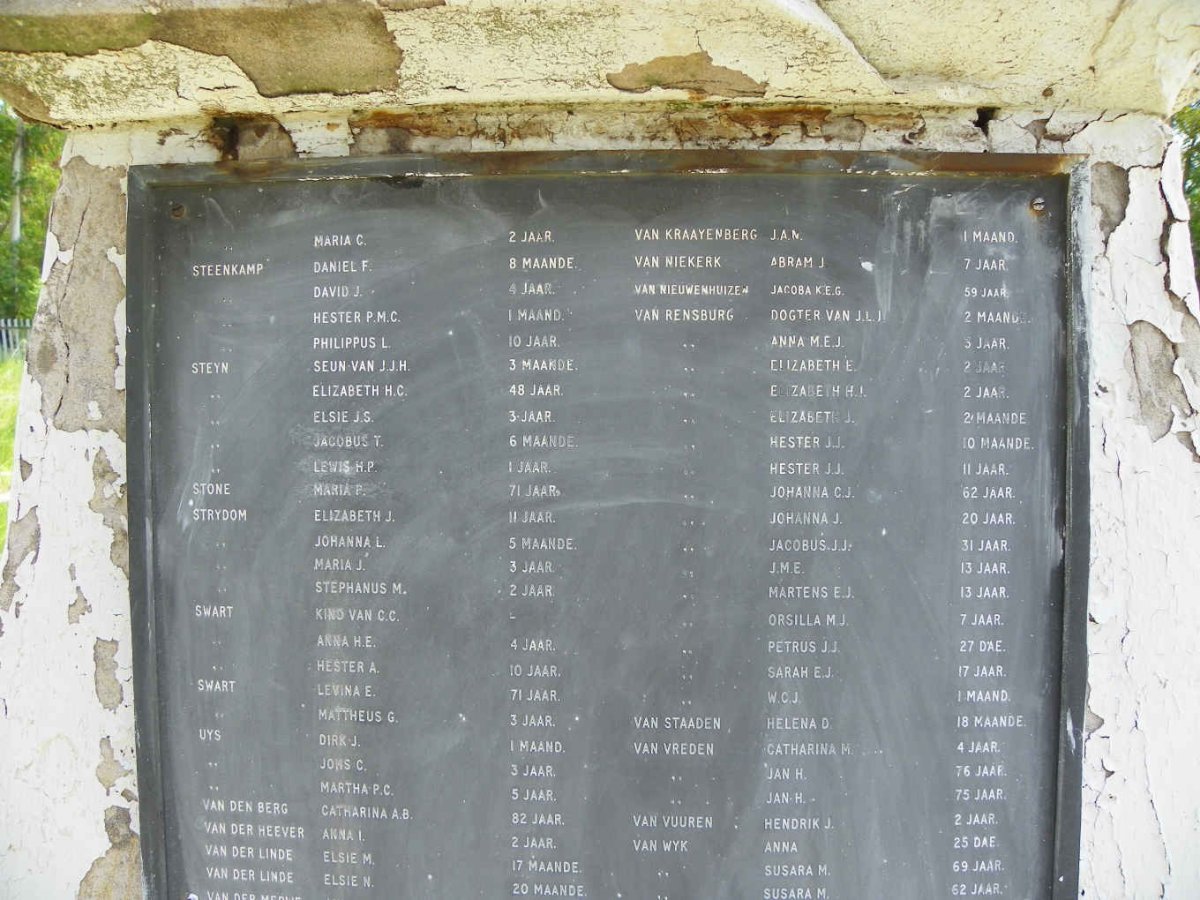 MARIA C. 2 JAAR.
STEENKAMP DANIEL F. 8 MAANDE.
DAVID J. 4 JAAR.
HESTER P.M.C. 1 MAAND.
PHILIPPUS L. 10 JAAR.
STEYN SEUN VAN J.J.H. 3 MAANDE.
" ELIZABETH H.C. 48 JAAR.
" ELSIE J.S. 3 JAAR.
" JACOBUS T. 6 MAANDE.
" LEWIS H.P. 1 JAAR.
STONE MARIA P. 71 JAAR.
STRYDOM ELIZABETH J. 11 JAAR.
" JOHANNA L. 5 MAANDE.
" MARIA J. 3 JAAR.
" STEPHANUS M. 2 JAAR.
SWART KIND VAN C.C. -
" ANNA H.E. 4 JAAR.
" HESTER A. 10 JAAR.
SWART LEVINA E. 71 JAAR.
" MATTHEUS G. 3 JAAR.
UYS DIRK J. 1 MAAND.
" JOHS C. 3 JAAR.
" MARTHA P.C. 5 JAAR.
VAN DEN BERG CATHARINA A.B. 82 JAAR.
VAN DER HEEVER ANNA I. 2 JAAR.
VAN DER LINDE ELSIE M. 17 MAANDE.
VAN DER LINDE ELSIE N. 20 MAANDE.
VAN DER MERWE
VAN KRAAYENBERG J.A.N. 1 MAAND.
VAN NIEKERK ABRAM J. 7 JAAR.
VAN NIEUWENHUIZEN JACOBA K.E.G. 59 JAAR.
VAN RENSBURG DOGTER VAN J.L.J. 2 MAANDE.
" ANNA M.E.J. 3 JAAR.
" ELIZABETH E. 2 JAAR
" ELIZABETH H.J. 2 JAAR.
" ELIZABETH J. 2 MAANDE
" HESTER J.J. 10 MAANDE.
" HESTER J.J. 11 JAAR.
" JOHANNA C.J. 62 JAAR.
" JOHANNA J. 20 JAAR.
" JACOBUS J.J. 31 JAAR.
" J.M.E. 13 JAAR.
" MARTENS E.J. 13 JAAR.
" ORSILLA M.J. 7 JAAR.
" PETRUS J.J. 27 DAE.
" SARAH E.J. 17 JAAR.
" W.C.J. 1 MAAND.
VAN STAADEN HELENA D. 18 MAANDE.
VAN VREDEN CATHARINA M. 4 JAAR.
" JAN H. 76 JAAR.
" JAN H. 75 JAAR.
VAN VUUREN HENDRIK J. 2 JAAR.
VAN WYK ANNA 25 DAE.
" SUSARA M. 69 JAAR.
" SUSARA M. 62 JAAR.